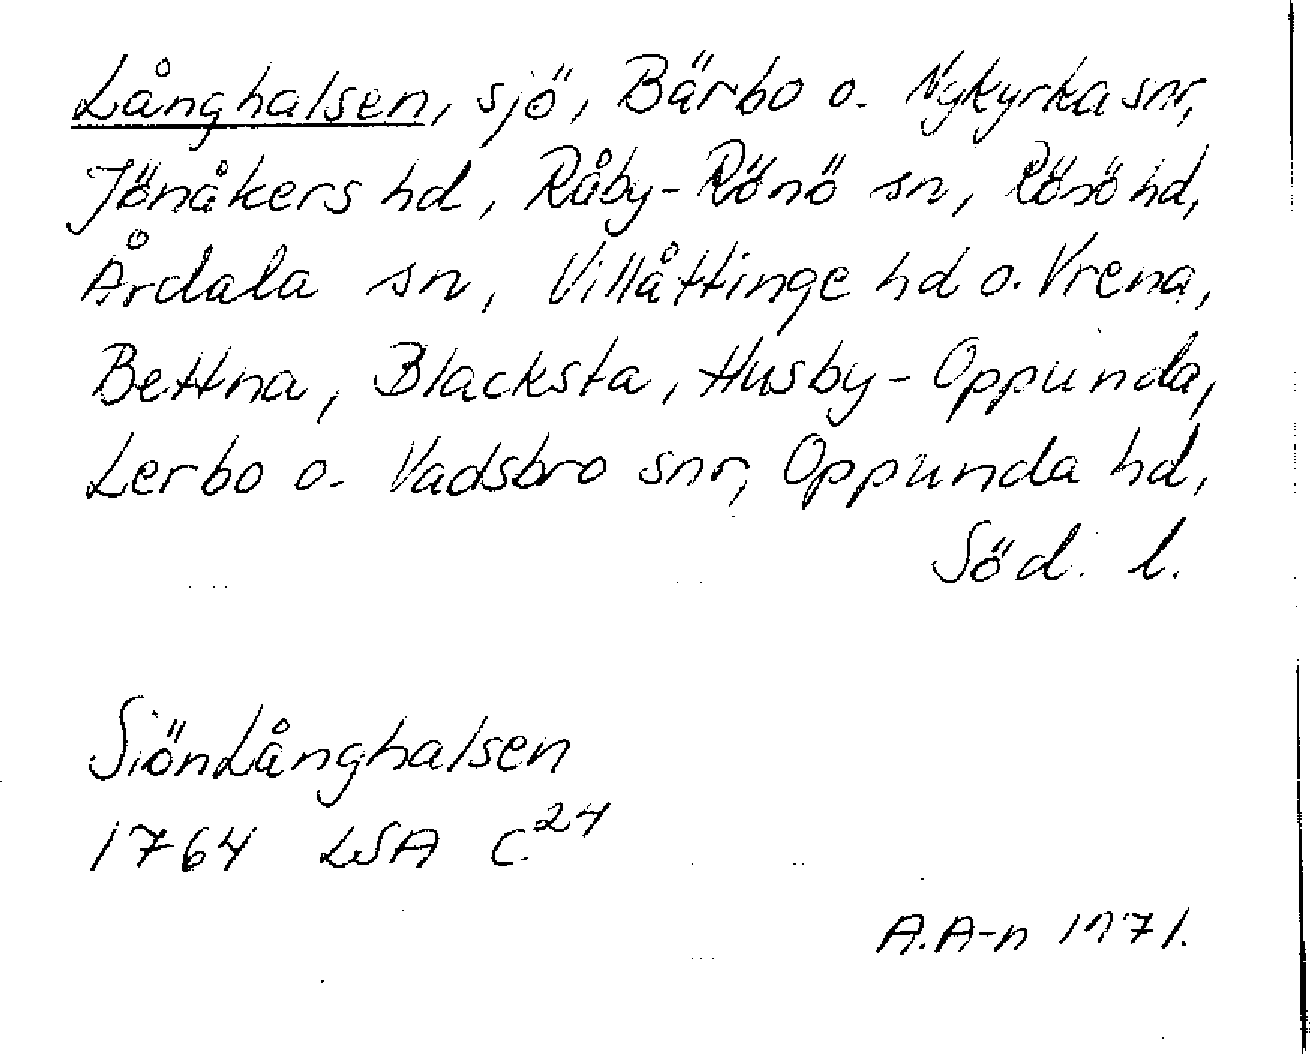 Långhalsen, sjö, Bärbo o. Nykyrka snr,
Jönåkers hd, Råby-Rönö sn, Rönö hd,
Årdala sn, Villåttinge hd o. Vrena,
Bettna, Blacksta, Husby-Oppunda,
Lerbo o. Vadsbro snr, Oppunda hd,
Söd. l.
SiönLånghalsen
1764 LSA C24
A.A-n 1971.